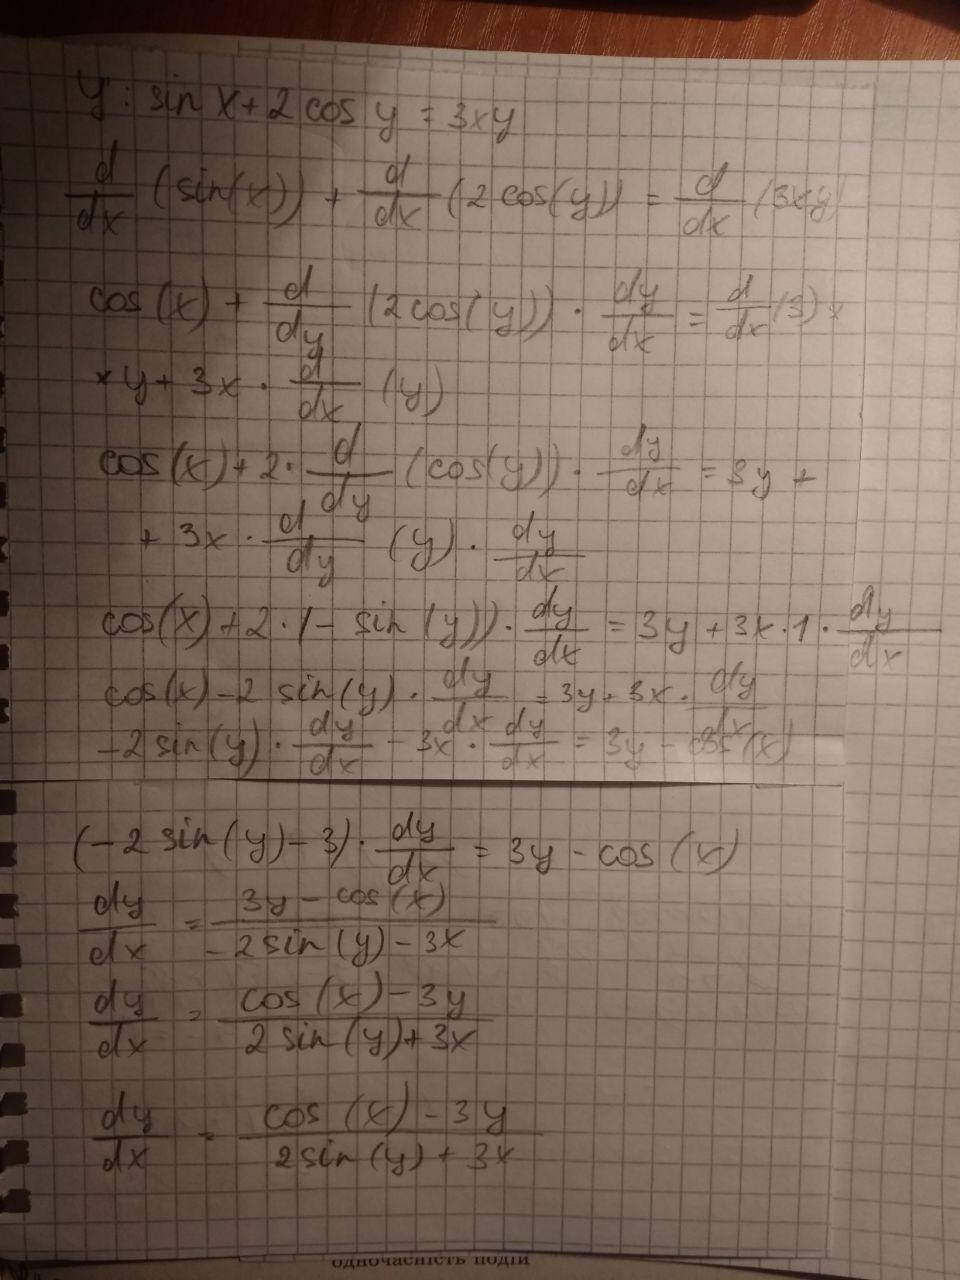 y': sin x + 2 cos y = 3xy
d/dx (sin(x)) + d/dx (2 cos(y)) = d/dx (3xy)
cos(x) + d/dy (2cos(y)) · dy/dx = d/dx (3) ×
× y + 3x · d/dx (y)
cos(x) + 2 · d/dy (cos(y)) · dy/dx = 3y +
+ 3x · d/dy (y) · dy/dx
cos(x) + 2 · (- sin(y)) · dy/dx = 3y + 3x · 1 · dy/dx
cos(x) - 2 sin(y) · dy/dx = 3y + 3x · dy/dx
-2 sin(y) · dy/dx - 3x · dy/dx = 3y - cos(x)
(-2 sin(y) - 3) · dy/dx = 3y - cos(x)
dy/dx = 3y - cos(x) / -2 sin(y) - 3x
dy/dx = cos(x) - 3y / 2 sin(y) + 3x
dy/dx = cos(x) - 3y / 2sin(y) + 3x
одночасність подій